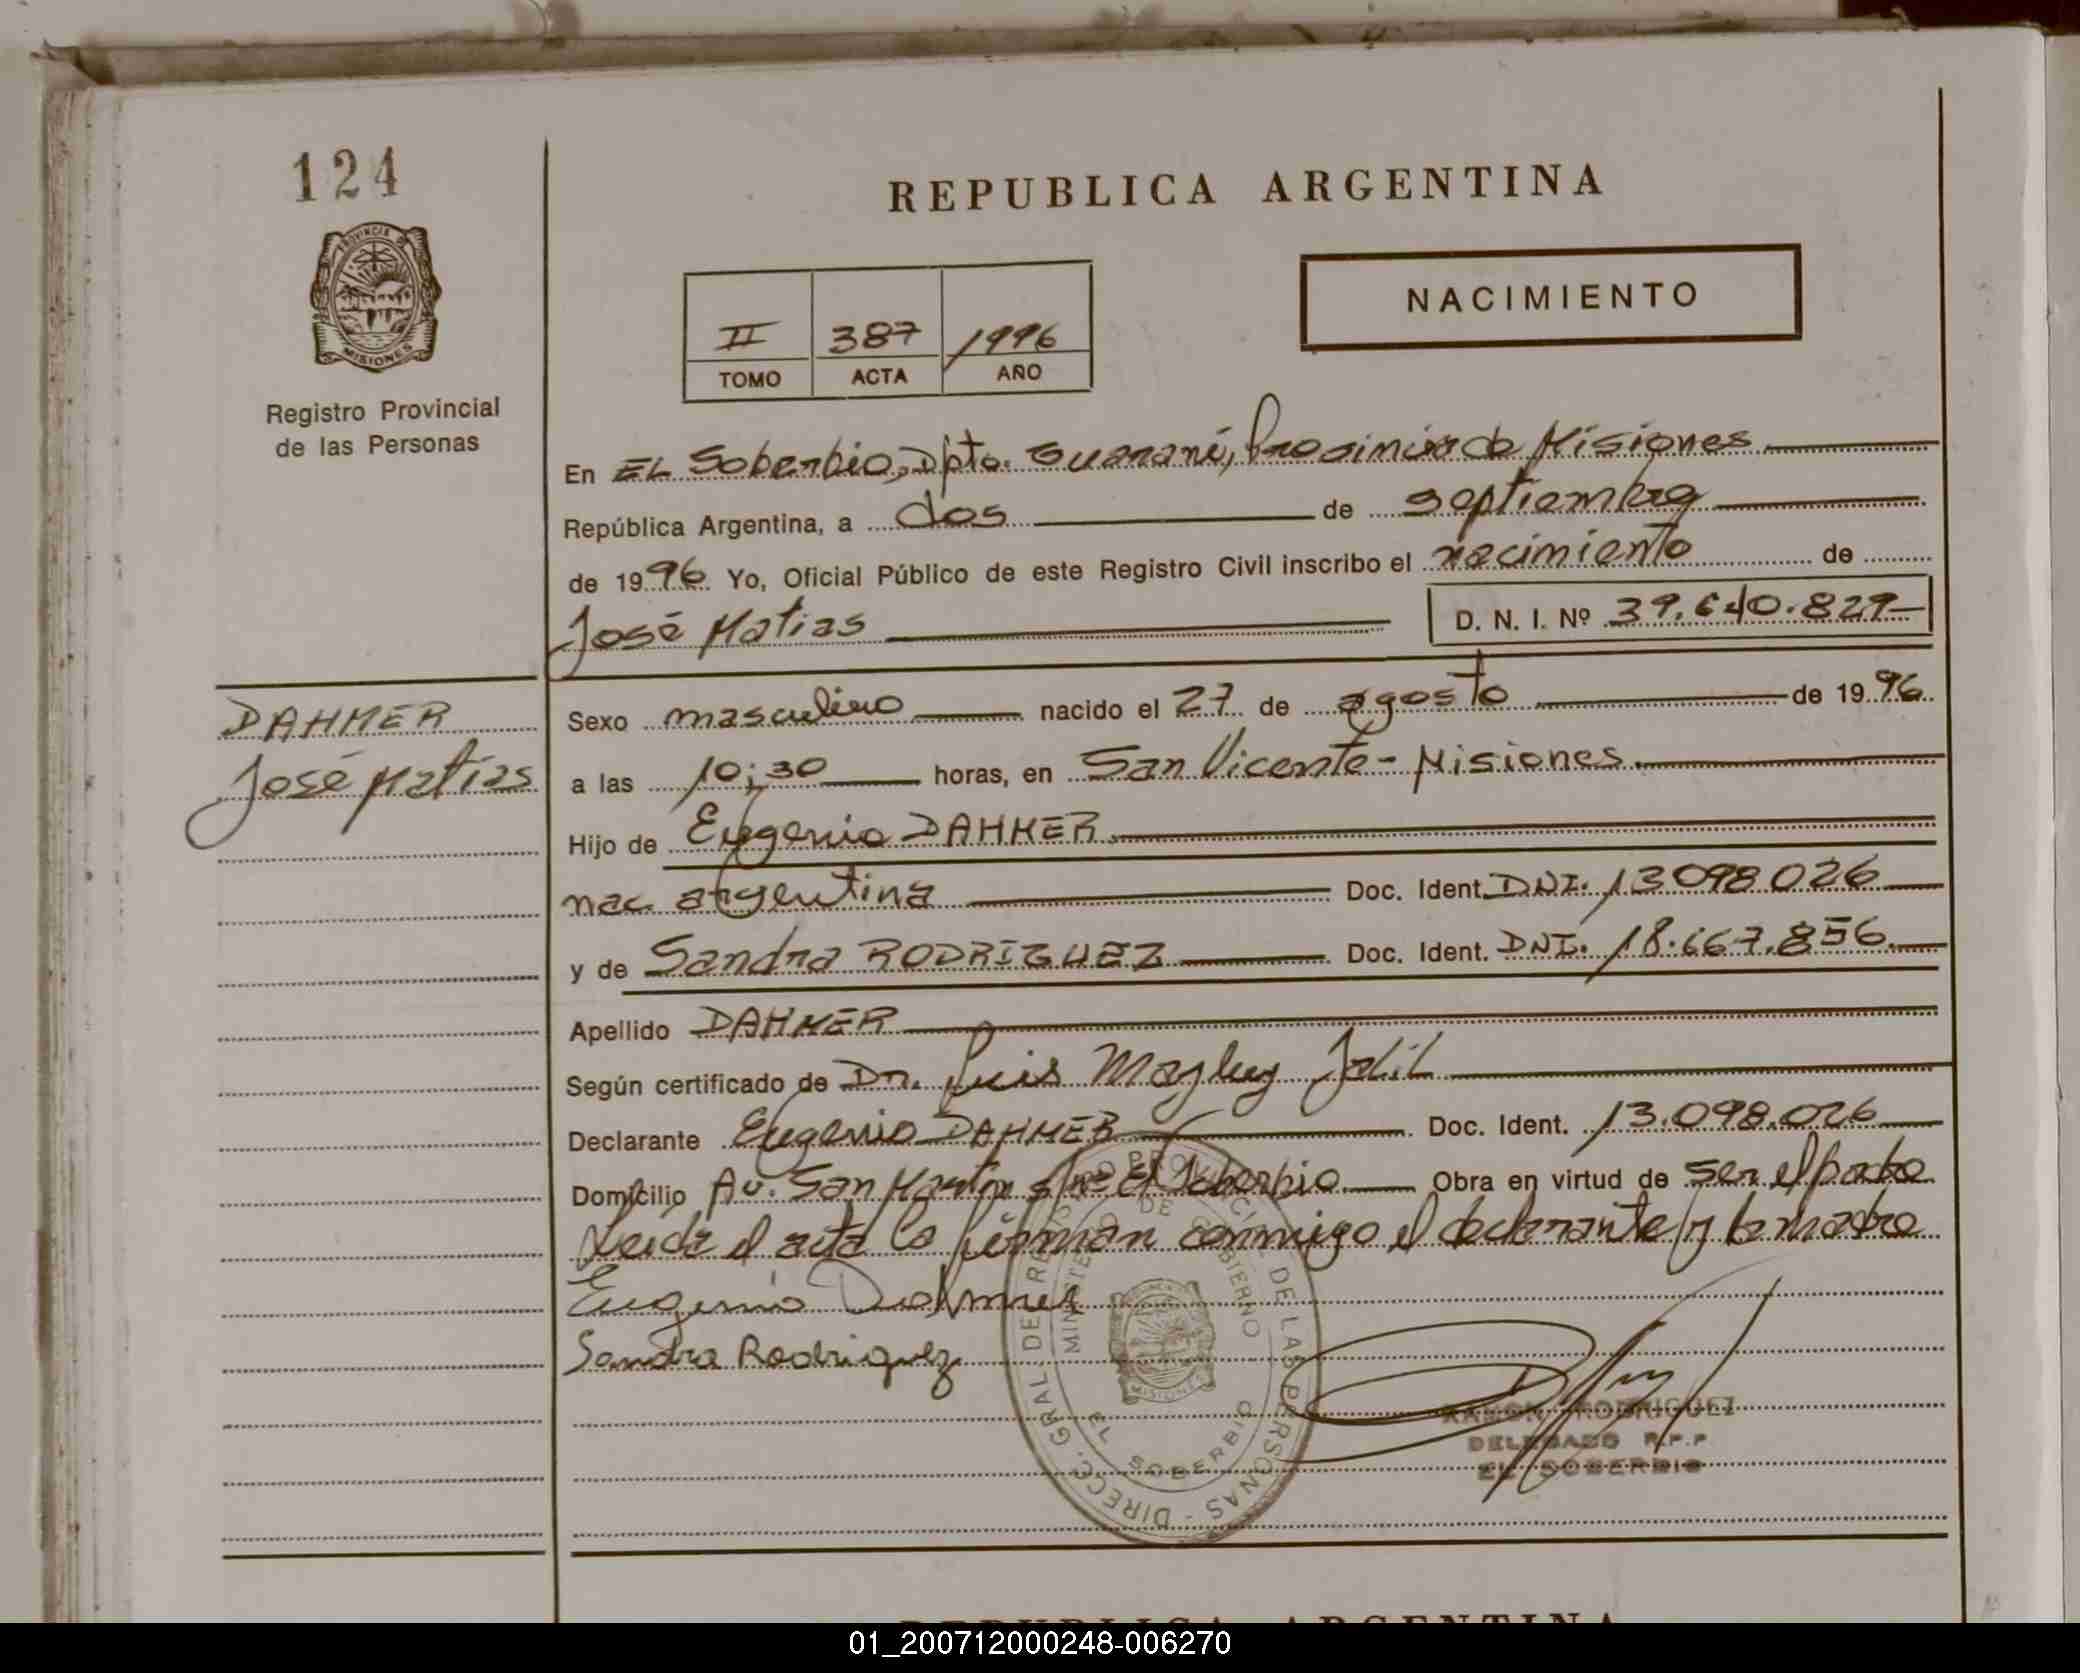 124
PROVINCIA DE
MISIONES
Registro Provincial
de las Personas
REPUBLICA ARGENTINA
NACIMIENTO
II 387 1996
TOMO ACTA AÑO
En EL Soberbio, Dpto. Guaraní, Provincia de Misiones
República Argentina, a dos de septiembre
de 1996 Yo, Oficial Público de este Registro Civil inscribo el nacimiento de
José Matias D. N. I. Nº 39.640.829
DAHMER
José Matías
Sexo masculino nacido el 27 de agosto de 1996
a las 10:30 horas, en San Vicente - Misiones.
Hijo de Eugenio DAHMER
nac. argentina Doc. Ident. DNI. 13098026
y de Sandra RODRIGUEZ Doc. Ident. DNI. 18.667.856
Apellido DAHMER
Según certificado de Dr. Luis Jalil
Declarante Eugenio DAHMER Doc. Ident. 13.098.026
Domicilio Av. San Martín s/nº El Soberbio Obra en virtud de ser el padre
Leída el acta la firman conmigo el declarante y la madre
Eugenio Dahmer
Sandra Rodriguez
DIRECC. GRAL. DE REGISTRO PROVINCIAL DE LAS PERSONAS -
MINISTERIO DE GOBIERNO
MISIONES
EL SOBERBIO
RAMON RODRIGUEZ
DELEGADO R.P.P
EL SOBERBIO
REPUBLICA ARGENTINA
01_200712000248-006270